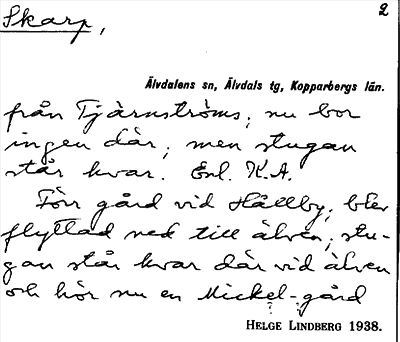 Skarp, 2
Älvdalens sn, Älvdals tg, Kopparbergs län.
från Tjärnströms; nu bor
ingen där; men stugan
står kvar. Enl. K.A.
Förr gård vid Hållby; blev
flyttad ned till älven; stu-
gan står kvar där vid älven
och hör nu en Mickel-gård
HELGE LINDBERG 1938.